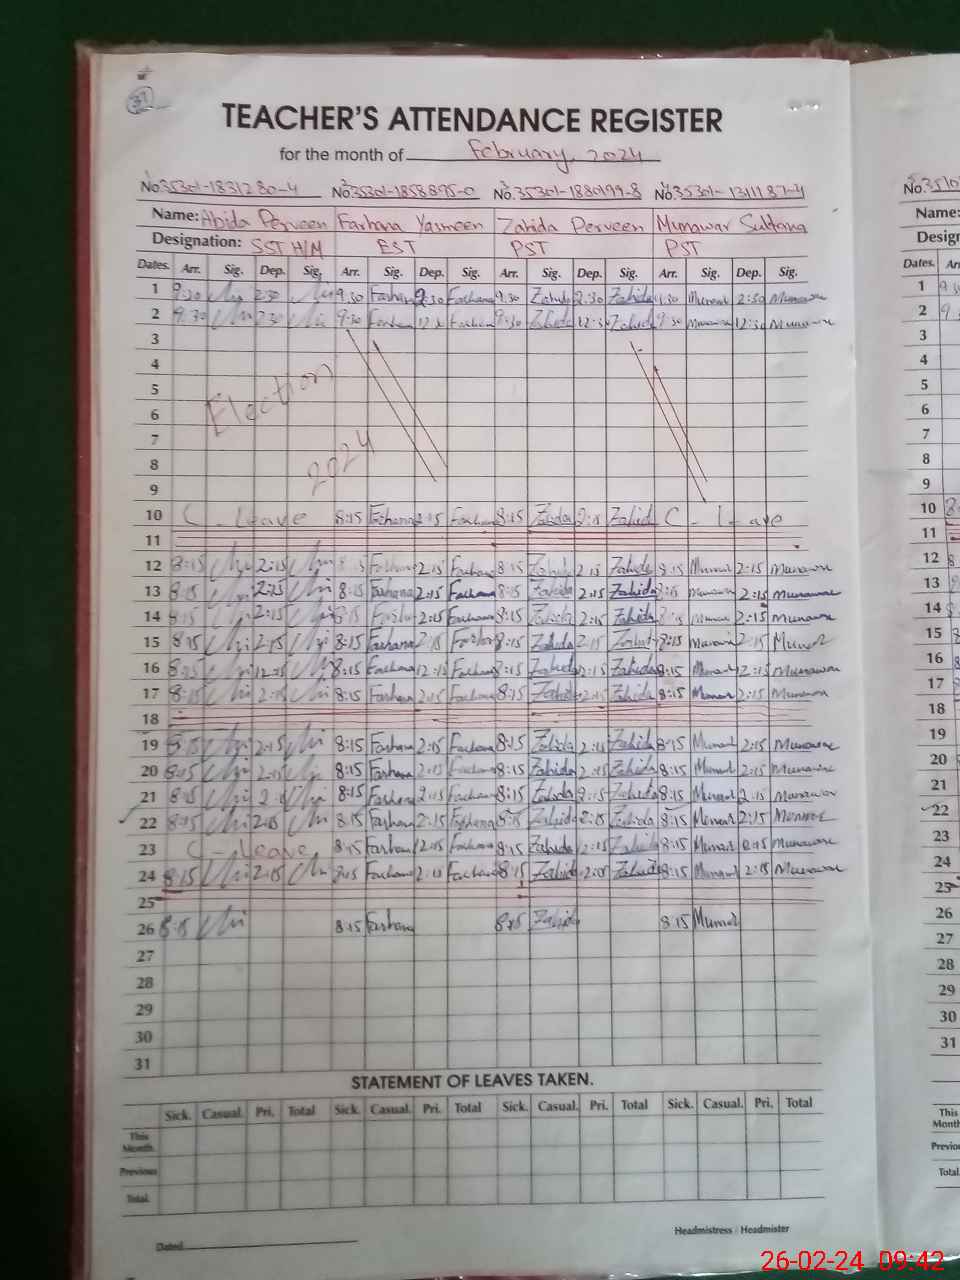 37
TEACHER'S ATTENDANCE REGISTER
for the month of February, 2024
No. 35301-1831280-4 No. 35301-1858895-0 No. 35301-1880199-8 No. 35301-1311187-4
Name: Abida Perveen Farhana Yasmeen Zahida Perveen Munawar Sultana
Designation: SST H/M EST PST PST
Dates. Arr. Sig. Dep. Sig. Arr. Sig. Dep. Sig. Arr. Sig. Dep. Sig. Arr. Sig. Dep. Sig.
1 9:30 2:30 9.30 Farhana 2:30 Farhana 9.30 Zahida 2:30 Zahida 9.30 2:30 Munawar
2 9:30 9:30 Farhana Farhana 9:30 Zahida 12:30 Zahida 9:30 Munawar 12:30 Munawar
3
4
5 Election
6
7
8 2024
9
10 C - Leave 8:15 Farhana 2:15 Farhana 8:15 Zahida 2:15 Zahida C - Leave
11
12 8:15 2:15 8:15 Farhana 2:15 Farhana 8:15 Zahida 2:15 Zahida 8:15 2:15 Munawar
13 8:15 2:15 8:15 Farhana 2:15 Farhana 8:15 Zahida 2:15 Zahida 8:15 Munawar 2:15 Munawar
14 8:15 2:15 8:15 2:15 Farhana 8:15 Zahida 2:15 Zahida 8:15 2:15 Munawar
15 8:15 2:15 8:15 Farhana 2:15 Farhana 8:15 Zahida 2:15 Zahida 8:15 Munawar 2:15
16 8:15 12:15 8:15 Farhana 12:15 Farhana 8:15 Zahida 12:15 Zahida 8:15 12:15 Munawar
17 8:15 2:15 8:15 Farhana 2:15 Farhana 8:15 Zahida 2:15 Zahida 8:15 2:15 Munawar
18
19 8:15 2:15 8:15 Farhana 2:15 Farhana 8:15 Zahida 2:15 Zahida 8:15 2:15 Munawar
20 8:15 2:15 8:15 Farhana 2:15 Farhana 8:15 Zahida 2:15 Zahida 8:15 2:15 Munawar
21 8:15 8:15 Farhana 2:15 Farhana 8:15 Zahida 2:15 Zahida 8:15 2:15 Munawar
22 8:15 2:15 8:15 Farhana 2:15 Farhana 8:15 Zahida 2:15 Zahida 8:15 2:15
23 C - Leave 8:15 Farhana 2:15 Farhana 8:15 Zahida 2:15 Zahida 8:15 2:15 Munawar
24 8:15 2:15 8:15 Farhana 2:15 Farhana 8:15 Zahida 2:15 Zahida 8:15 2:15 Munawar
25
26 8:15 8:15 Farhana 8:15 Zahida 8:15
27
28
29
30
31
STATEMENT OF LEAVES TAKEN.
Sick. Casual. Pri. Total Sick. Casual. Pri. Total Sick. Casual. Pri. Total Sick. Casual. Pri. Total
This
Month.
Previous
Total.
Dated
Headmistress / Headmister
No.
Name:
Desig
Dates.
1
2
3
4
5
6
7
8
9
10
11
12
13
14
15
16
17
18
19
20
21
22
23
24
25
26
27
28
29
30
31
This
Month
Previo
Total
26-02-24 09:42